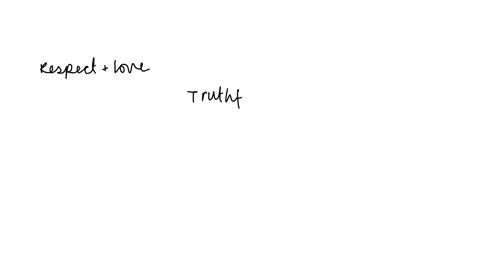 Respect + love
Truthf